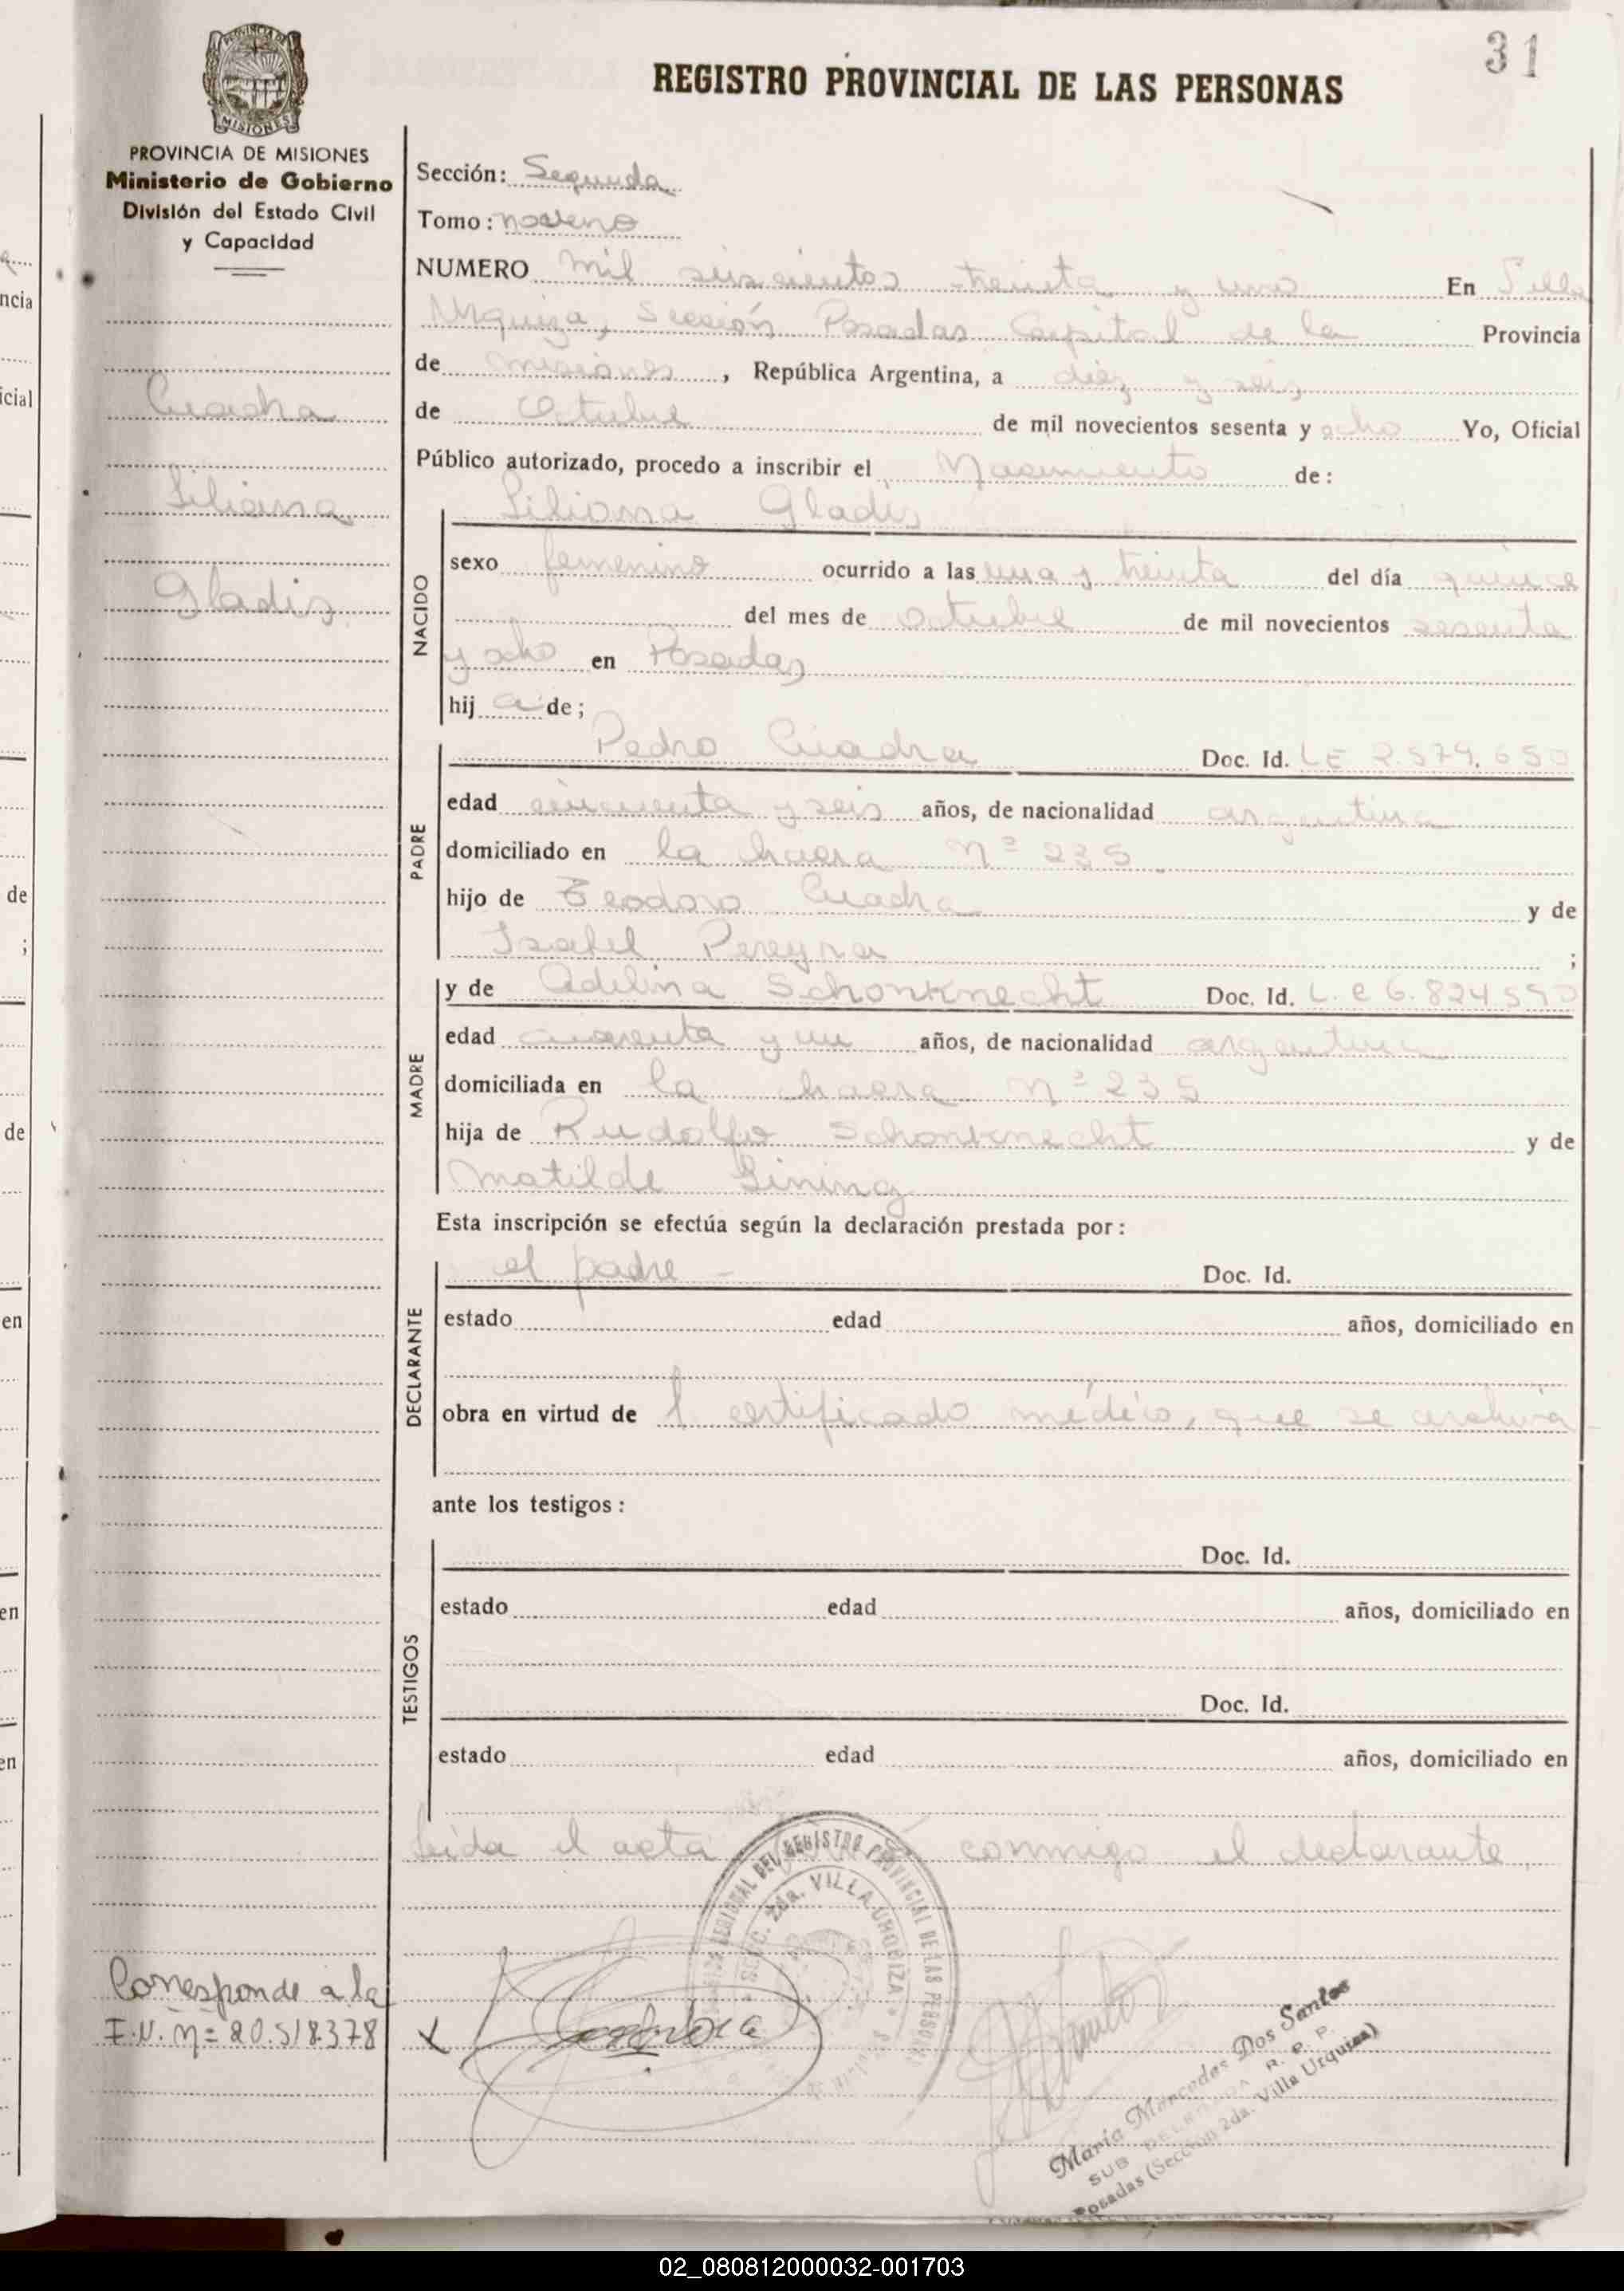 31
REGISTRO PROVINCIAL DE LAS PERSONAS
PROVINCIA DE MISIONES
Ministerio de Gobierno
División del Estado Civil
y Capacidad
Cuadra
Liliana
Gladis
Corresponde a la
I.N. Nº= 20.518.378
Sección: Segunda
Tomo: noveno
NUMERO mil seiscientos treinta y uno En Villa
Urquiza, Sección Posadas Capital de la Provincia
de misiones, República Argentina, a diez y seis
de Octubre de mil novecientos sesenta y ocho Yo, Oficial
Público autorizado, procedo a inscribir el Nacimiento de:
NACIDO
Liliana Gladis
sexo femenino ocurrido a las una y treinta del día quince
del mes de octubre de mil novecientos sesenta
y ocho en Posadas
hija de;
PADRE
Pedro Cuadra Doc. Id. LE 2.579.650
edad cincuenta y seis años, de nacionalidad argentina
domiciliado en la chacra Nº 235
hijo de Teodoro Cuadra y de
Isabel Pereyra ;
MADRE
y de Adelina Schonknecht Doc. Id. L.C 6.824.590
edad cuarenta y un años, de nacionalidad argentina
domiciliada en la chacra Nº 235
hija de Rudolfo Schonknecht y de
Matilde Gining
Esta inscripción se efectúa según la declaración prestada por:
DECLARANTE
el padre - Doc. Id.
estado edad años, domiciliado en
obra en virtud de l certificado médico, que se archiva
ante los testigos:
TESTIGOS
Doc. Id.
estado edad años, domiciliado en
Doc. Id.
estado edad años, domiciliado en
Leida el acta conmigo el declarante,
REGIONAL DEL REGISTRO PROVINCIAL DE LAS PERSONAS
SECC. 2da. VILLA URQUIZA
x
María Mercedes Dos Santos
SUB DELEGADA R. P. P.
Posadas (Sección 2da. Villa Urquiza)
02_080812000032-001703